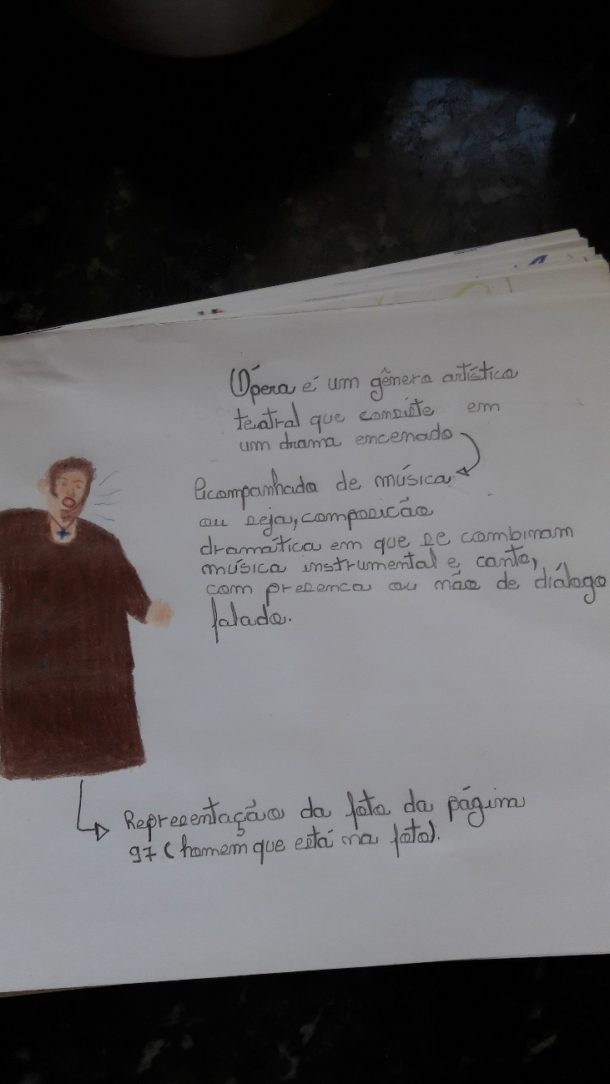 Ópera é um gênero artístico
teatral que consiste em
um drama encenado
acompanhada de música
ou seja, composição
dramática em que se combinam
música instrumental e canto,
com presenca ou não de diálogo
falado.
Representação da foto da página
97 (homem que está na foto).